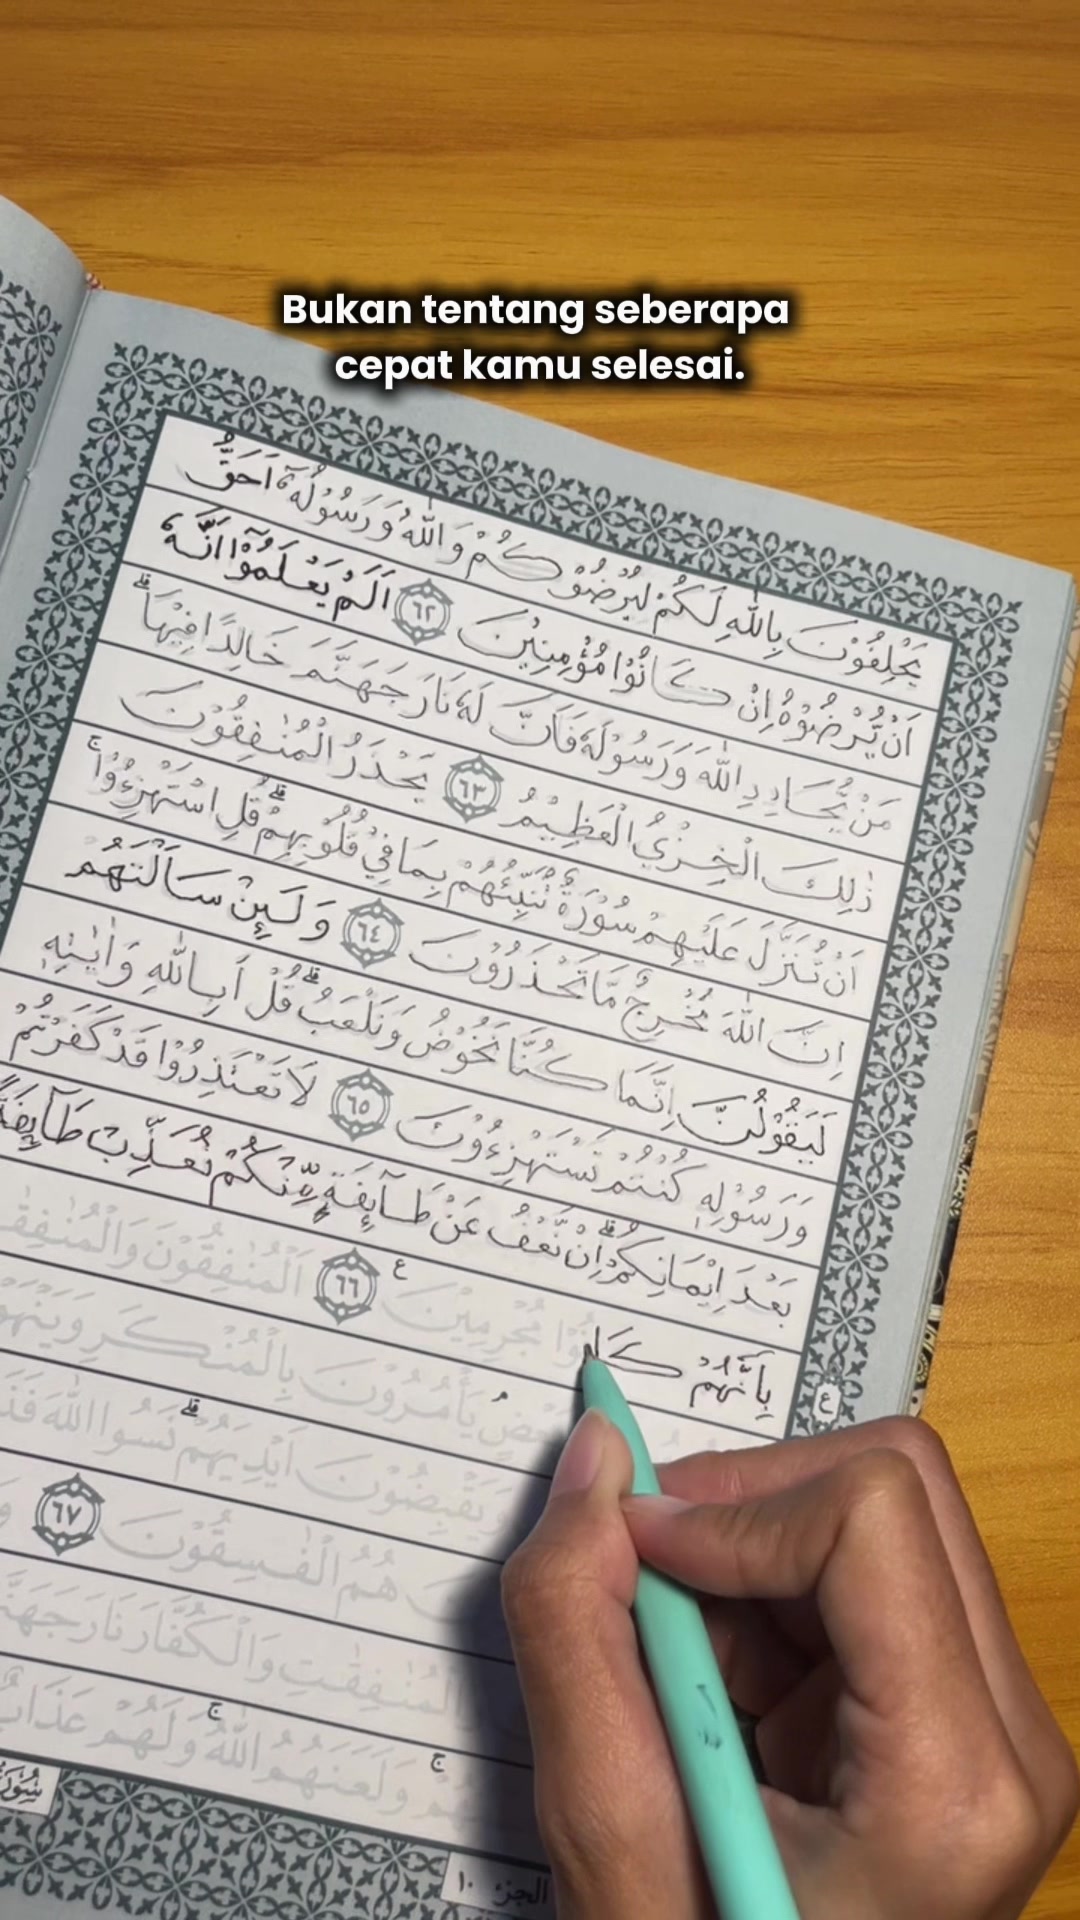 Bukan tentang seberapa
cepat kamu selesai.
يَحْلِفُوْنَ بِاللّٰهِ لَكُمْ لِيُرْضُوْكُمْ وَاللّٰهُ وَرَسُوْلُهٗٓ اَحَقُّ
اَنْ يُّرْضُوْهُ اِنْ كَانُوْا مُؤْمِنِيْنَ ٦٢ اَلَمْ يَعْلَمُوْٓا اَنَّهٗ
مَنْ يُّحَادِدِ اللّٰهَ وَرَسُوْلَهٗ فَاَنَّ لَهٗ نَارَ جَهَنَّمَ خَالِدًا فِيْهَاۗ
ذٰلِكَ الْخِزْيُ الْعَظِيْمُ ٦٣ يَحْذَرُ الْمُنٰفِقُوْنَ
اَنْ تُنَزَّلَ عَلَيْهِمْ سُوْرَةٌ تُنَبِّئُهُمْ بِمَا فِيْ قُلُوْبِهِمْۗ قُلِ اسْتَهْزِءُوْاۚ
اِنَّ اللّٰهَ مُخْرِجٌ مَّا تَحْذَرُوْنَ ٦٤ وَلَىِٕنْ سَاَلْتَهُمْ
لَيَقُوْلُنَّ اِنَّمَا كُنَّا نَخُوْضُ وَنَلْعَبُۗ قُلْ اَبِاللّٰهِ وَاٰيٰتِهٖ
وَرَسُوْلِهٖ كُنْتُمْ تَسْتَهْزِءُوْنَ ٦٥ لَا تَعْتَذِرُوْا قَدْ كَفَرْتُمْ
بَعْدَ اِيْمَانِكُمْۗ اِنْ نَّعْفُ عَنْ طَاۤىِٕفَةٍ مِّنْكُمْ نُعَذِّبْ طَاۤىِٕفَةً
بِاَنَّهُمْ كَانُوْا مُجْرِمِيْنَ ࣖ ٦٦ اَلْمُنٰفِقُوْنَ وَالْمُنٰفِقٰ
ع
بَعْضٍ يَأْمُرُوْنَ بِالْمُنْكَرِ وَيَنْهَوْ
وَيَقْبِضُوْنَ اَيْدِيَهُمْۗ نَسُوا اللّٰهَ
هُمُ الْفٰسِقُوْنَ ٦٧
الْمُنٰفِقٰتِ وَالْكُفَّارَ نَارَ جَهَنَّ
وَلَعَنَهُمُ اللّٰهُۚ وَلَهُمْ عَذَابٌ
الجزء ١٠